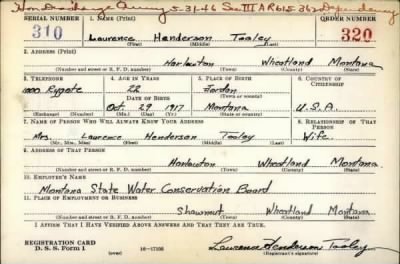 Hon Discharge Army 5-31-46 Sec III AR 615-362 Dependency
SERIAL NUMBER 1. NAME (Print) ORDER NUMBER
310 Laurence Henderson Tooley 320
(First) (Middle) (Last)
2. ADDRESS (Print)
Harlowton Wheatland Montana
(Number and street or R. F. D. number) (Town) (County) (State)
3. TELEPHONE 4. AGE IN YEARS 5. PLACE OF BIRTH 6. COUNTRY OF CITIZENSHIP
22 Jordan
DATE OF BIRTH (Town or county)
Oct. 29 1917 Montana U.S.A.
(Exchange) (Number) (Mo.) (Day) (Yr.) (State or country)
7. NAME OF PERSON WHO WILL ALWAYS KNOW YOUR ADDRESS 8. RELATIONSHIP OF THAT PERSON
Mrs. Laurence Henderson Tooley Wife
(Mr., Mrs., Miss) (First) (Middle) (Last)
9. ADDRESS OF THAT PERSON
Harlowton Wheatland Montana
(Number and street or R. F. D. number) (Town) (County) (State)
10. EMPLOYER'S NAME
Montana State Water Conservation Board
11. PLACE OF EMPLOYMENT OR BUSINESS
Shawmut Wheatland Montana
(Number and street or R. F. D. number) (Town) (County) (State)
I AFFIRM THAT I HAVE VERIFIED ABOVE ANSWERS AND THAT THEY ARE TRUE.
REGISTRATION CARD
D. S. S. Form 1 (over) 16-17105 Laurence Henderson Tooley
(Registrant's signature)